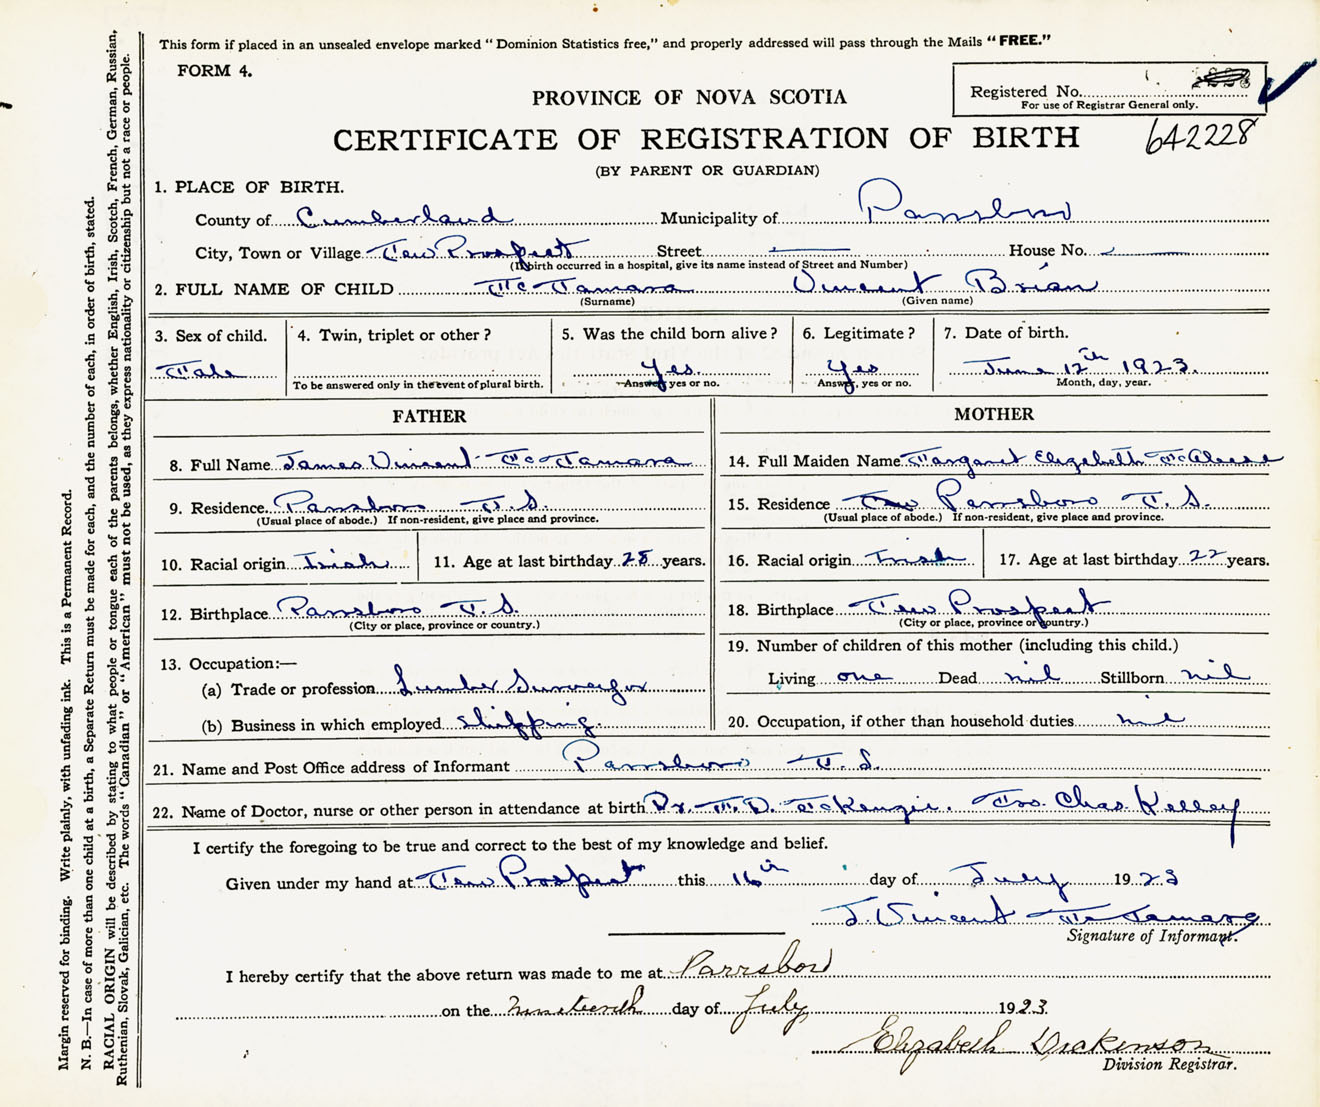 This form if placed in an unsealed envelope marked "Dominion Statistics free," and properly addressed will pass through the Mails "FREE."
FORM 4.
Registered No.
For use of Registrar General only.
642228
PROVINCE OF NOVA SCOTIA
CERTIFICATE OF REGISTRATION OF BIRTH
(BY PARENT OR GUARDIAN)
1. PLACE OF BIRTH.
County of Cumberland Municipality of Parrsboro
City, Town or Village New Prospect Street — House No. —
(If birth occurred in a hospital, give its name instead of Street and Number)
2. FULL NAME OF CHILD McNamara Vincent Brian
(Surname) (Given name)
3. Sex of child. 4. Twin, triplet or other? 5. Was the child born alive? 6. Legitimate? 7. Date of birth.
Male Yes. Yes June 12th 1923.
To be answered only in the event of plural birth. Answer, yes or no. Answer, yes or no. Month, day, year.
FATHER
8. Full Name James Vincent McNamara
9. Residence. Parrsboro N.S.
(Usual place of abode.) If non-resident, give place and province.
10. Racial origin Irish 11. Age at last birthday 28 years.
12. Birthplace Parrsboro N.S.
(City or place, province or country.)
13. Occupation:—
(a) Trade or profession Lumber Surveyor
(b) Business in which employed Shipping.
MOTHER
14. Full Maiden Name Margaret Elizabeth McAleese
15. Residence Parrsboro N.S.
(Usual place of abode.) If non-resident, give place and province.
16. Racial origin Irish 17. Age at last birthday 22 years.
18. Birthplace New Prospect
(City or place, province or country.)
19. Number of children of this mother (including this child.)
Living one Dead nil Stillborn nil
20. Occupation, if other than household duties nil
21. Name and Post Office address of Informant Parrsboro N.S.
22. Name of Doctor, nurse or other person in attendance at birth Dr. M.D. McKenzie. Mrs. Chas. Kelley
I certify the foregoing to be true and correct to the best of my knowledge and belief.
Given under my hand at New Prospect this 16th day of July 1923
J. Vincent McNamara
Signature of Informant.
I hereby certify that the above return was made to me at Parrsboro
on the nineteenth day of July 1923.
Elizabeth Dickinson
Division Registrar.
Margin reserved for binding. Write plainly, with unfading ink. This is a Permanent Record.
N. B.—In case of more than one child at a birth, a Separate Return must be made for each, and the number of each, in order of birth, stated.
RACIAL ORIGIN will be described by stating to what people or tongue each of the parents belongs, whether English, Irish, Scotch, French, German, Russian,
Ruthenian, Slovak, Galician, etc. The words "Canadian" or "American" must not be used, as they express nationality or citizenship but not a race or people.